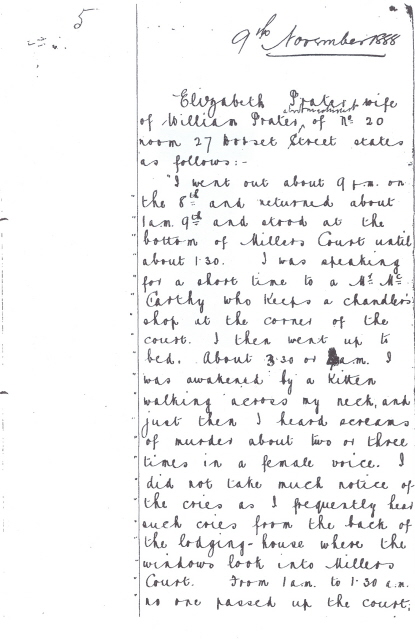 5
9th November 1888
Elizabeth Prater, wife
of William Prater, of No. 20
room 27 Dorset Street states
as follows:-
"I went out about 9 p.m. on
the 8th and returned about
1 a.m. 9th and stood at the
bottom of Millers Court until
about 1.30. I was speaking
for a short time to a Mr. Mc
Carthy who keeps a chandler's
shop at the corner of the
court. I then went up to
bed. About 3.30 or 4 a.m. I
was awakened by a kitten
walking across my neck, and
just then I heard screams
of murder about two or three
times in a female voice. I
did not take much notice of
the cries as I frequently hear
such cries from the back of
the lodging-house where the
windows look into Millers
Court. From 1 a.m. to 1.30 a.m.
no one passed up the court,